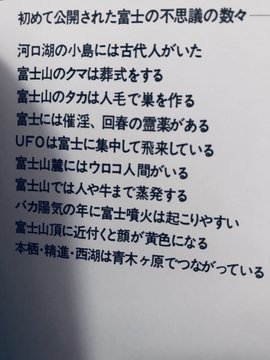 初めて公開された富士の不思議の数々
河口湖の小島には古代人がいた
富士山のクマは葬式をする
富士山のタカは人毛で巣を作る
富士には催淫、回春の霊薬がある
UFOは富士に集中して飛来している
富士山麓にはウロコ人間がいる
富士山では人や牛まで蒸発する
バカ陽気の年に富士噴火は起こりやすい
富士山頂に近付くと顔が黄色になる
本栖・精進・西湖は青木ヶ原でつながっている